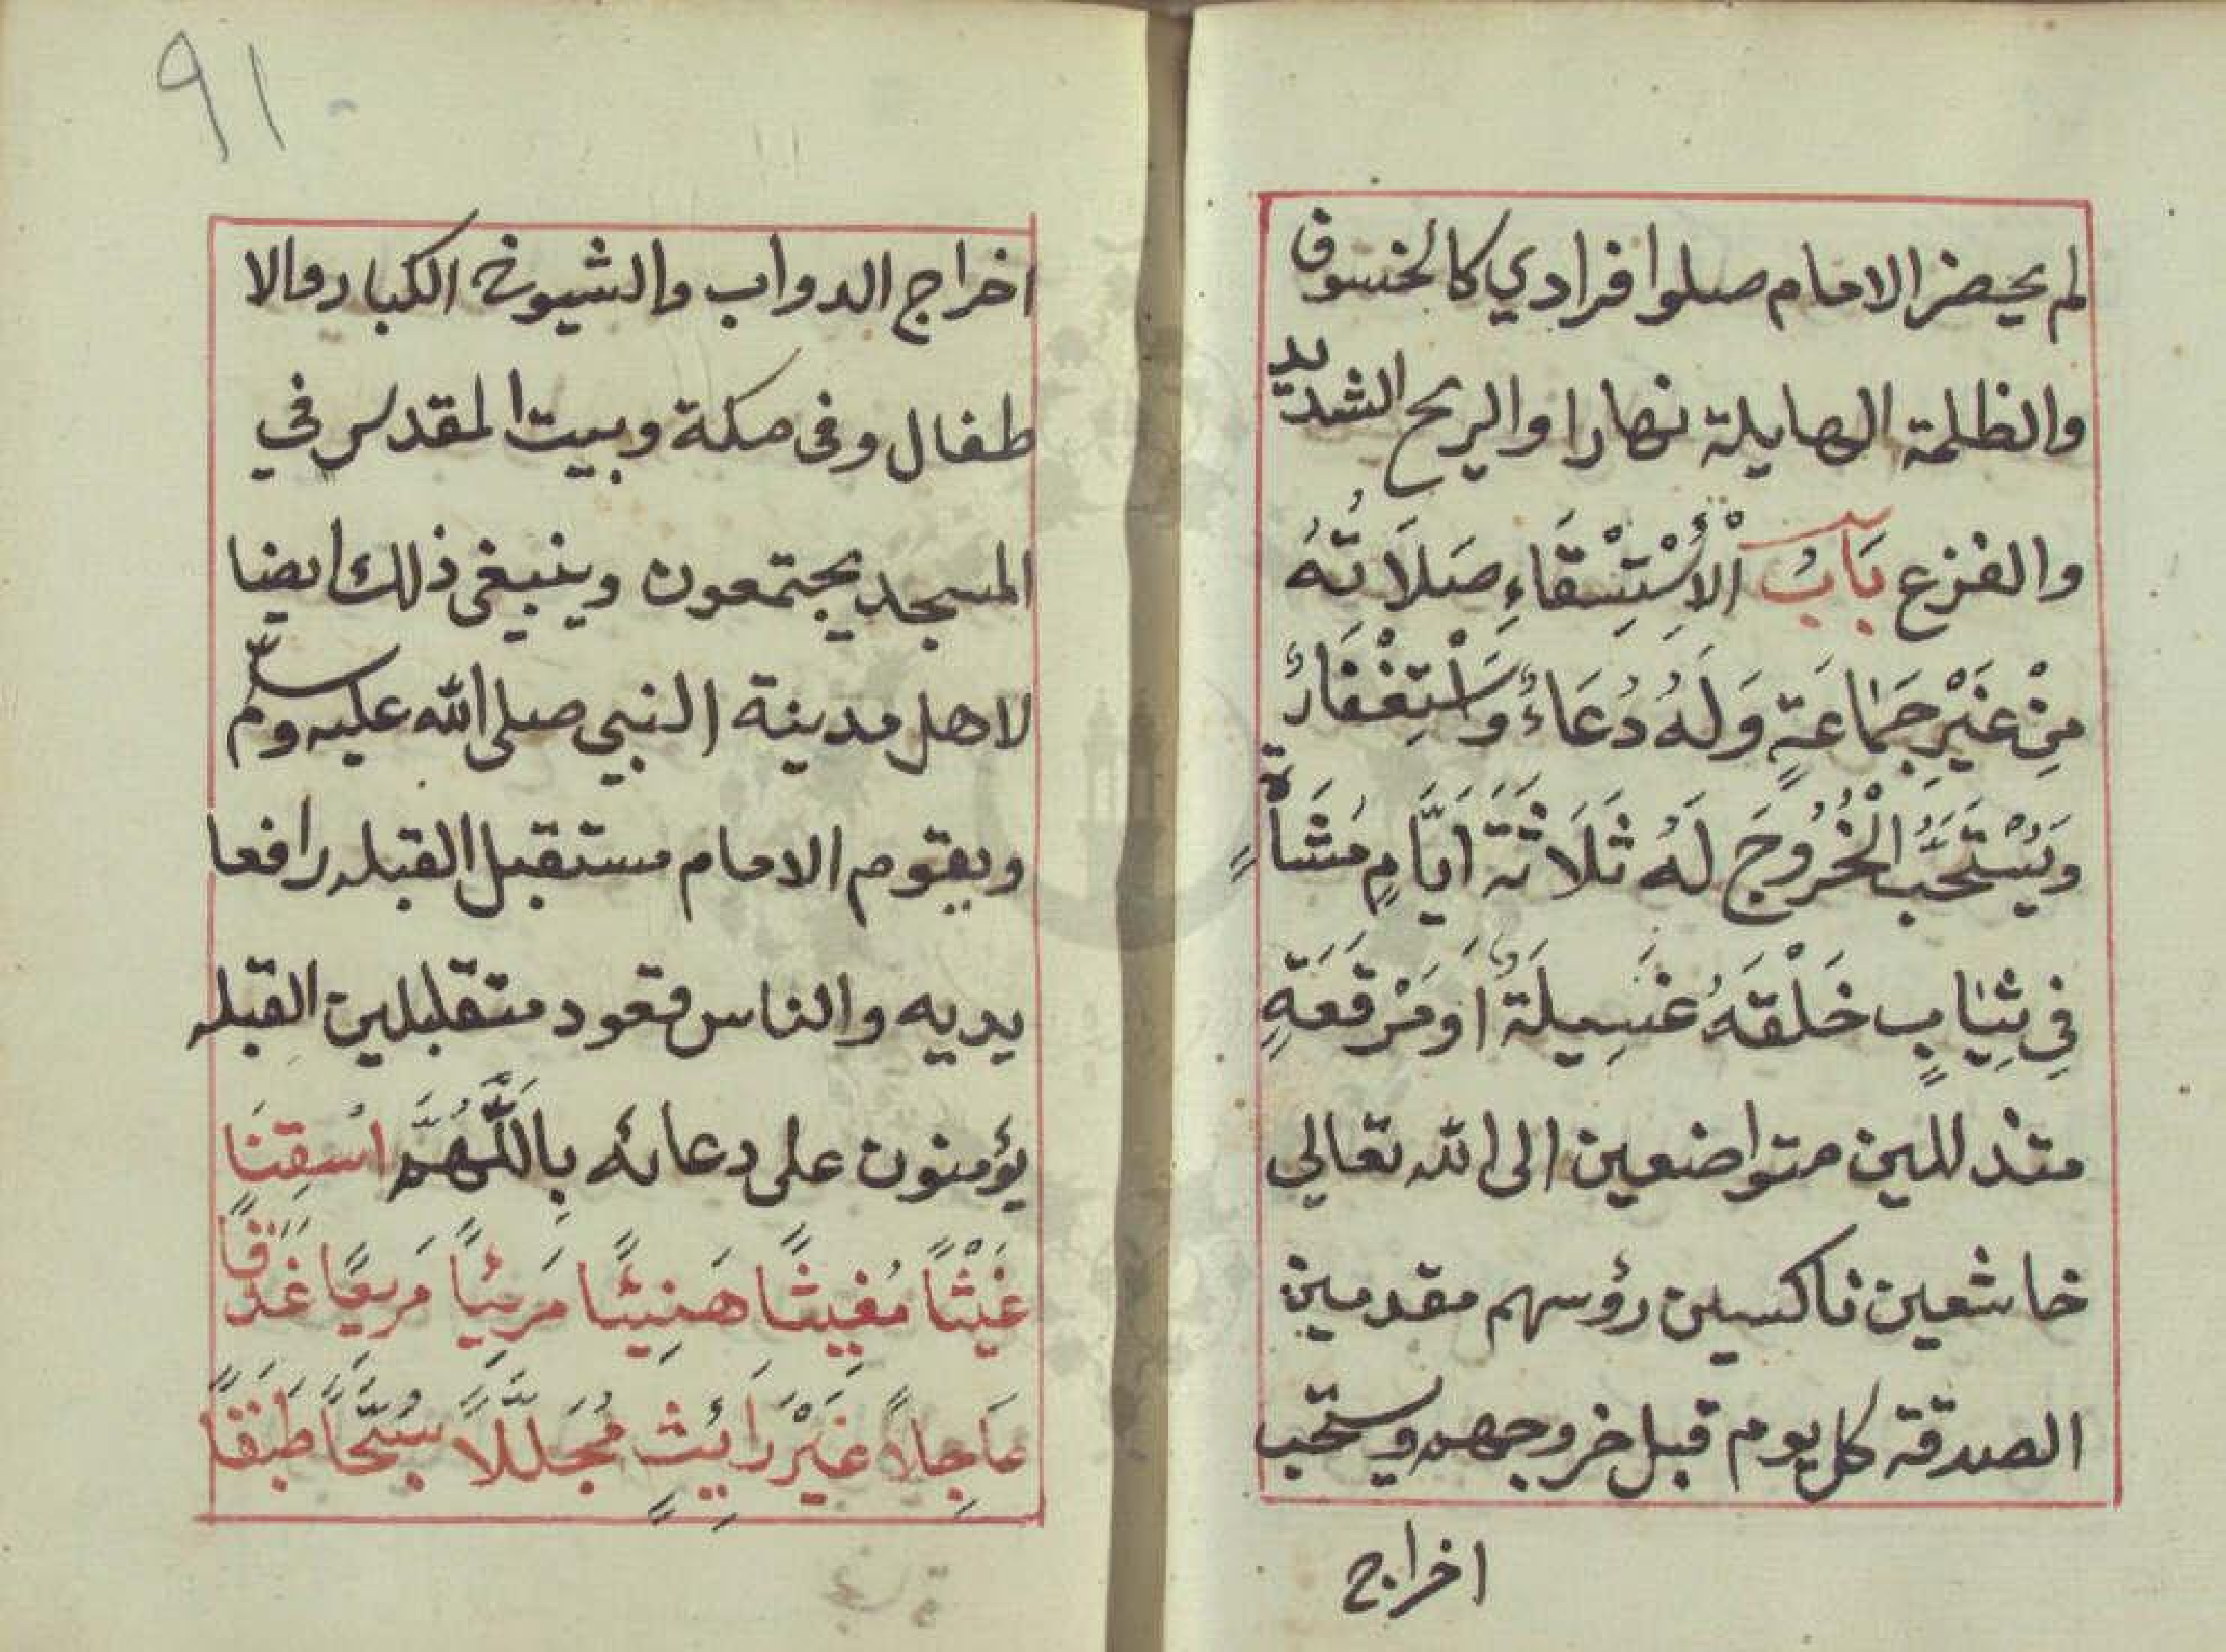 لم يحضر الامام صلوا فرادي كالخسوف
والظلمة الهايلة نهارا والريح الشديد
والفزع بَابُ الْاِسْتِسْقَاءِ صَلَاتُهُ
مِنْ غَيْرِ جَمَاعَةٍ وَلَهُ دُعَاءٌ وَاسْتِغْفَارٌ
وَيُسْتَحَبُّ الْخُرُوجَ لَهُ ثَلَاثَةَ اَيَّامٍ مُشَاةً
فِي ثِيَابٍ خَلْقَهُ غَسِيلَةً اَوْ مَرْقَعَةٍ
متذللين متواضعين الى الله تعالي
خاشعين ناكسين رؤسهم مقدمين
الصدقة كل يوم قبل خروجهم ويستحب
اخراج
٩١
اخراج الدواب والشيوخ الكبار والا
طفال وفى مكة وبيت المقدس في
المسجد يجتمعون وينبغى ذلك ايضا
لاهل مدينة النبي صلى الله عليه وسلم
ويقوم الامام مستقبل القبله رافعا
يديه والناس قعود متقلبلين القبله
يؤمنون على دعائه بِاللَّهُمَّ اسْقِنَا
غَيْثًا مُغِيثًا هَنِيئًا مَرِيئًا مَرِيعًا غَدَقًا
عَاجِلاً غَيْرَ رَائِثٍ مُجَلَّلاً سُحَّاً طَبَقًا